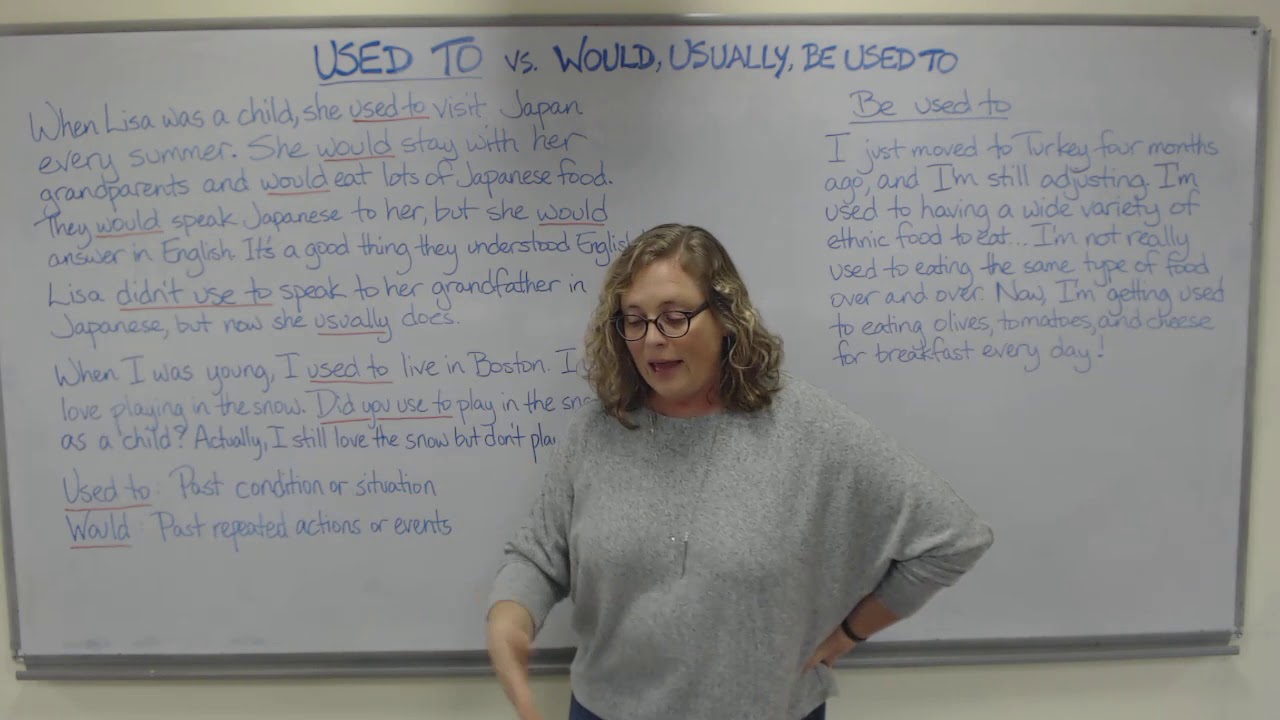 USED TO vs. WOULD, USUALLY, BE USED TO
When Lisa was a child, she used to visit Japan
every summer. She would stay with her
grandparents and would eat lots of Japanese food.
They would speak Japanese to her, but she would
answer in English. It's a good thing they understood English
Lisa didn't use to speak to her grandfather in
Japanese, but now she usually does.
When I was young, I used to live in Boston. I
love playing in the snow. Did you use to play in the
as a child? Actually, I still love the snow but don't
Used to: Past condition or situation
Would: Past repeated actions or events
Be used to
I just moved to Turkey four months
ago, and I'm still adjusting. I'm
used to having a wide variety of
ethnic food to eat... I'm not really
used to eating the same type of food
over and over. Now, I'm getting used
to eating olives, tomatoes, and cheese
for breakfast every day!